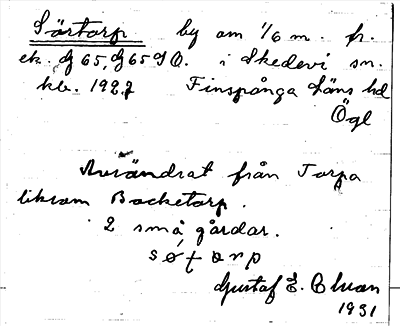 Sörtorp by om 1/6 m. fr.
ek. bl 65, bl 65 SO. i Skedevi sn.
kb. 1927 Finspånga läns hd
Ögl
Avsöndrat från Torpa
liksom Backetorp.
2 små gårdar.
Gustaf E.
1931